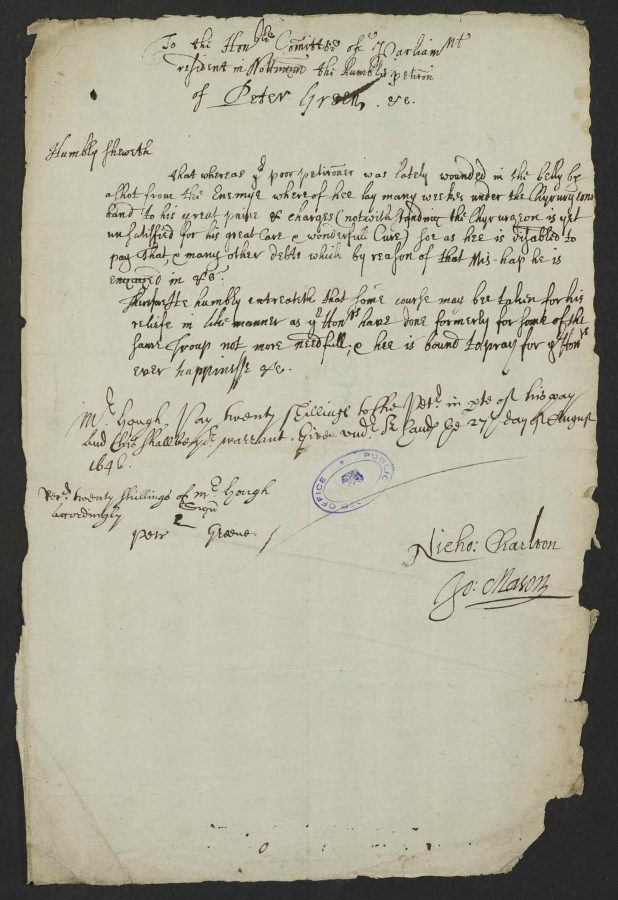 To the Honble Comittee of ye Parliamt
resident in Nottingm the humble petition
of Peter Green &c.
Humbly sheweth
that whereas yr poor petitioner was lately wounded in the belly by
a shot from the Enemye where of hee lay many weekes under the Chyrurgeons
hand to his great paine & charges (notwithstanding the Chyrurgeon is yet
unsatisfied for his great Care & wonderfull Cure) soe as hee is disabled to
pay that & many other debts which by reason of that Mis-hap he is
engaged in &c.
humbly entreateth that some course may be taken for his
reliefe in like manner as yr Honrs have done formerly for some of the
same Troup not more needfull, & hee is bound to pray for yr Honrs
ever happinisse &c.
Mr Hough, Pay twenty shillings to the Petr. in pte of his pay
And this shall be yr warrant. Given undr hands ye 27 day of August
1646.
Recd twenty shillings of Mr Hough
accordingly
Signu
Petr Greene
PUBLIC OFFICE
Nicho: Charlton
Jo: Mason